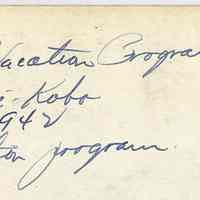 Vacation Progra
- Kobo
942
program.